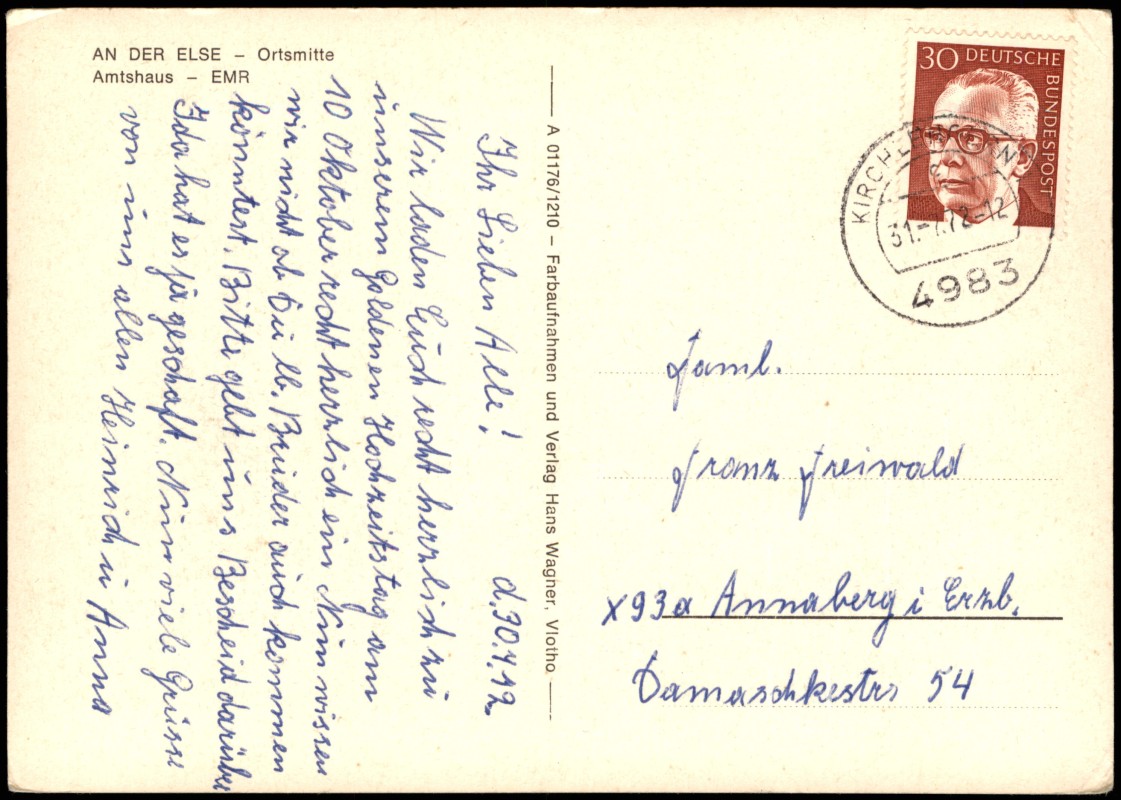 AN DER ELSE – Ortsmitte
Amtshaus – EMR
Ihr Lieben Alle! d. 30.7.72.
Wir laden Euch recht herzlich zu
unserem Goldenen Hochzeitstag am
10 Oktober recht herzlich ein Nun wissen
wir nicht ob Du lb. Bruder auch kommen
könntest. Bitte gebt uns Bescheid darüber
Ida hat es ja geschaft. Nun viele Grüsse
von uns allen Heinrich u Anna
A 01176/1210 – Farbaufnahmen und Verlag Hans Wagner, Vlotho
30 DEUTSCHE
BUNDESPOST
31.-7.72-12
4983
Faml.
Franz Freiwald
X93a Annaberg i Erzb.
Damaschkestr 54